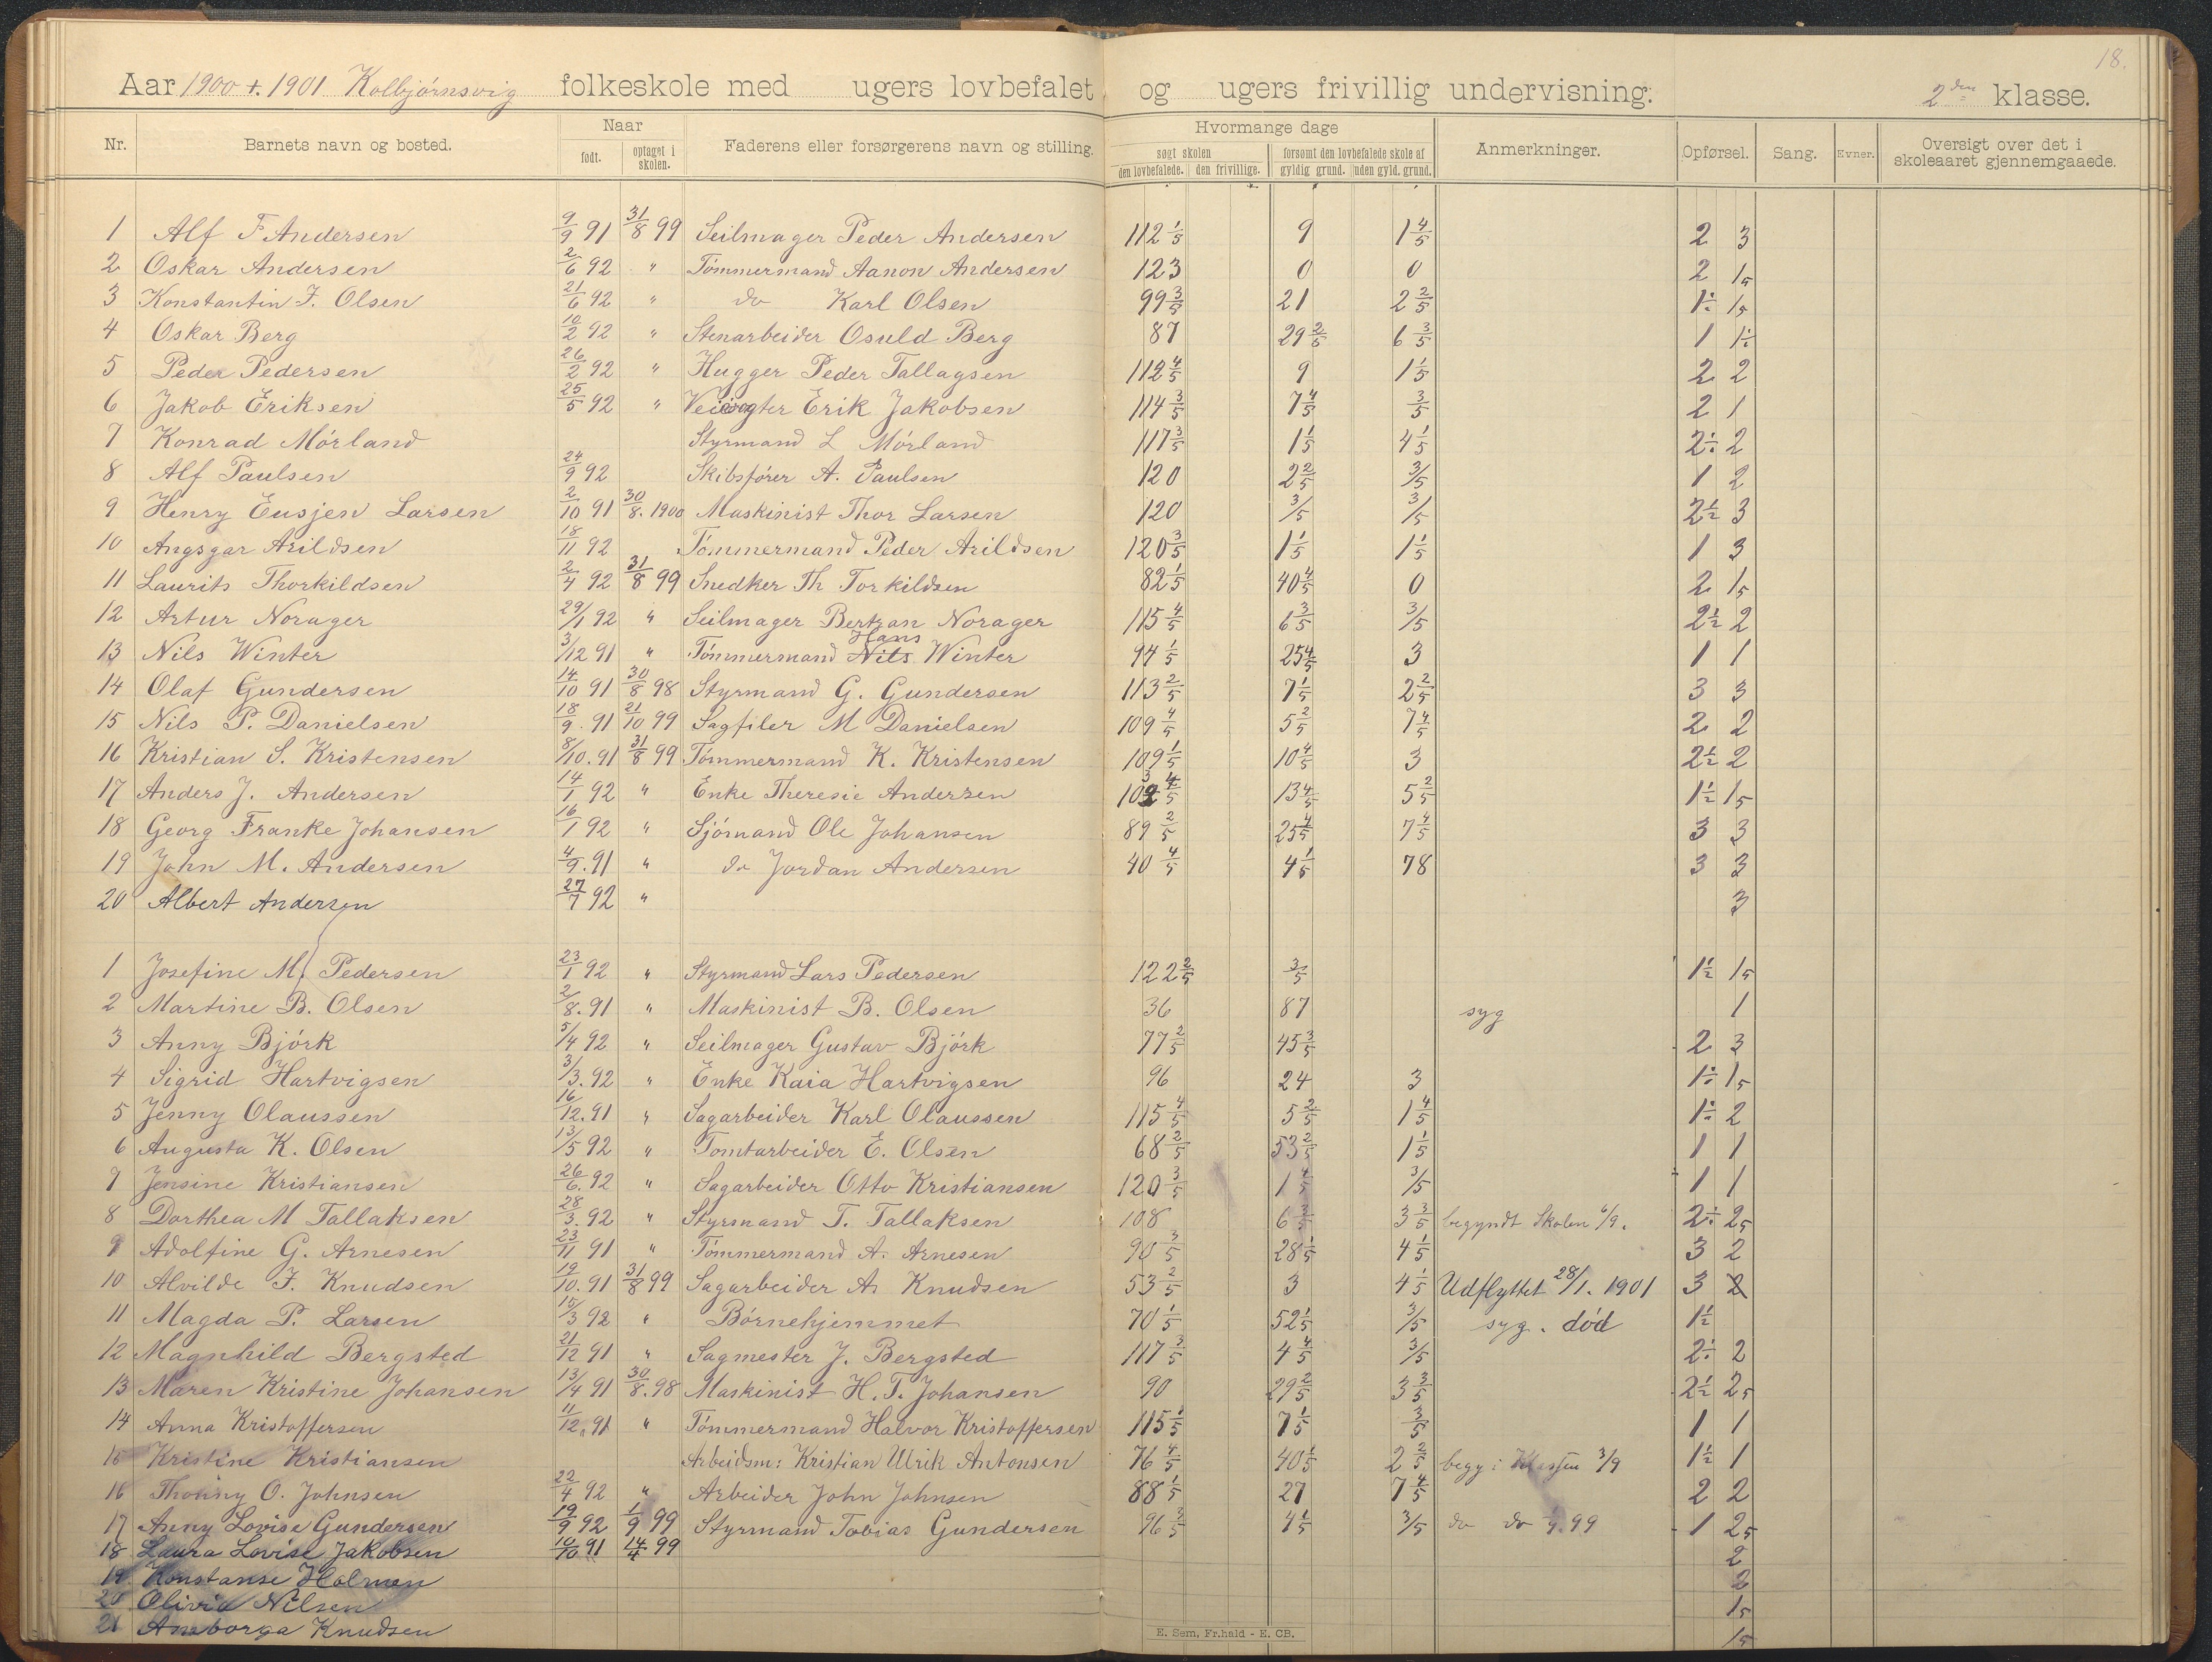 18.
Aar 1900 + 1901 Kolbjørnsvig folkeskole med ugers lovbefalet og ugers frivillig undervisning: 2den klasse.
Nr. Barnets navn og bosted. Naar født. optaget i skolen. Faderens eller forsørgerens navn og stilling. Hvormange dage søgt skolen den lovbefalede. den frivillige. forsømt den lovbefalede skole af gyldig grund. uden gyld. grund. Anmerkninger. Opførsel. Sang. Evner. Oversigt over det i skoleaaret gjennemgaaede.
1 Alf F Andersen 9/9 91 31/8 99 Seilmager Peder Andersen 112 1/5 9 1 4/5 2 3
2 Oskar Andersen 2/6 92 " Tømmermand Aanon Andersen 123 0 0 2 15
3 Konstantin F. Olsen 21/6 92 " do Karl Olsen 99 3/5 21 2 2/5 1÷ 15
4 Oskar Berg 10/2 92 " Stenarbeider Osuld Berg 87 29 2/5 6 3/5 1 1÷
5 Peder Pedersen 26/2 92 " Hugger Peder Tallagsen 112 4/5 9 1 1/5 2 2
6 Jakob Eriksen 25/5 92 " Veivogter Erik Jakobsen 114 3/5 7 4/5 3/5 2 1
7 Konrad Mørland Styrmand L Mørland 117 3/5 1 1/5 4 1/5 2÷ 2
8 Alf Paulsen 24/9 92 Skibsfører A. Paulsen 120 2 2/5 3/5 1 2
9 Henry Eusjen Larsen 2/10 91 30/8. 1900 Maskinist Thor Larsen 120 3/5 3/5 2 1/2 3
10 Angsgar Arildsen 18/11 92 Tømmermand Peder Arildsen 120 3/5 1 1/5 1 1/5 1 3
11 Laurits Thorkildsen 2/4 92 31/8 99 Snedker Th Torkildsen 82 1/5 40 4/5 0 2 15
12 Artur Norager 29/1 92 " Seilmager Bertran Norager 115 4/5 6 3/5 3/5 2 1/2 2
13 Nils Winter 3/12 91 " Tømmermand Nils Hans Winter 94 1/5 25 4/5 3 1 1
14 Olaf Gundersen 14/10 91 30/8 98 Styrmand G. Gundersen 113 2/5 7 1/5 2 2/5 3 3
15 Nils P. Danielsen 18/9. 91 21/10 99 Sagfiler M Danielsen 109 4/5 5 2/5 7 4/5 2 2
16 Kristian S. Kristensen 8/10. 91 31/8 99 Tømmermand K. Kristensen 109 1/5 10 4/5 3 2 1/2 2
17 Anders J. Andersen 14/1 92 " Enke Theresie Andersen 103 4/5 13 4/5 5 2/5 1 1/2 15
18 Georg Franke Johansen 16/1 92 " Sjømand Ole Johansen 89 2/5 25 4/5 7 4/5 3 3
19 John M. Andersen 4/9. 91 " do Jordan Andersen 40 4/5 4 1/5 78 3 3
20 Albert Andersen 27/7 92 " 3
1 Josefine M. Pedersen 23/1 92 " Styrmand Lars Pedersen 122 2/5 3/5 1 1/2 15
2 Martine B. Olsen 2/8. 91 " Maskinist B. Olsen 36 87 syg 1
3 Anny Bjørk 5/4 92 " Seilmager Gustav Bjørk 77 2/5 45 3/5 2 3
4 Sigrid Hartvigsen 3/3. 92 " Enke Kaia Hartvigsen 96 24 3 1÷ 15
5 Jenny Olaussen 16/12. 91 " Sagarbeider Karl Olaussen 115 4/5 5 2/5 1 4/5 1÷ 2
6 Augusta K. Olsen 13/5 92 " Tomtarbeider E. Olsen 68 2/5 53 2/5 1 1/5 1 1
7 Jensine Kristiansen 26/6. 92 " Sagarbeider Otto Kristiansen 120 3/5 1 4/5 3/5 1 1
8 Dorthea M Tallaksen 28/3. 92 " Styrmand T. Tallaksen 108 6 3/5 3 3/5 begyndt Skolen 6/9. 2÷ 25
9 Adolfine G. Arnesen 23/11 91 " Tømmermand A. Arnesen 90 3/5 28 1/5 4 1/5 3 2
10 Alvilde F. Knudsen 19/10. 91 31/8 99 Sagarbeider A. Knudsen 53 2/5 3 4 1/5 Udflyttet 28/1. 1901 3 2
11 Magda P. Larsen 15/3 92 " Børnehjemmet 70 1/5 52 1/5 3/5 syg. død 1 1/2
12 Magnhild Bergsted 21/12 91 " Sagmester J. Bergsted 117 3/5 4 4/5 3/5 2÷ 2
13 Maren Kristine Johansen 13/4 91 30/8. 98 Maskinist H. T. Johansen 90 29 2/5 3 3/5 2 1/2 25
14 Anna Kristoffersen 11/12. 91 " Tømmermand Halvor Kristoffersen 115 1/5 7 1/5 3/5 1 1
15 Kristine Kristiansen Arbeidsm: Kristian Ulrik Antonsen 76 4/5 40 1/5 2 2/5 begy i Klassen 3/9 1 1/2 1
16 Thonny O. Johnsen 22/4 92 " Arbeider John Johnsen 88 1/5 27 7 4/5 2 2
17 Anny Lovise Gundersen 19/9 92 1/9 99 Styrmand Tobias Gundersen 96 3/5 4 1/5 3/5 do do 99 1 25
18 Laura Lovise Jakobsen 10/10 91 14/4 99 2
19. Konstanse Holmen 2
20 Olivia Nilsen 15
21 Anborga Knudsen 15
E. Sem, Fr.hald - E. CB.